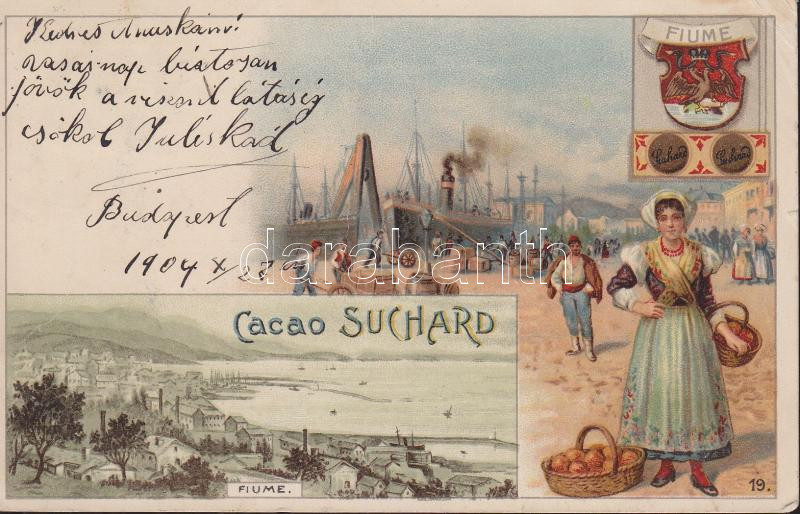 Kedves Anuskám!
vasárnap biztosan
jövök a viszont látásig
csókol Juliskád
Budapest
1904 X/28 án
FIUME
Suchard Suchard
darabanth
Cacao SUCHARD
FIUME.
19.